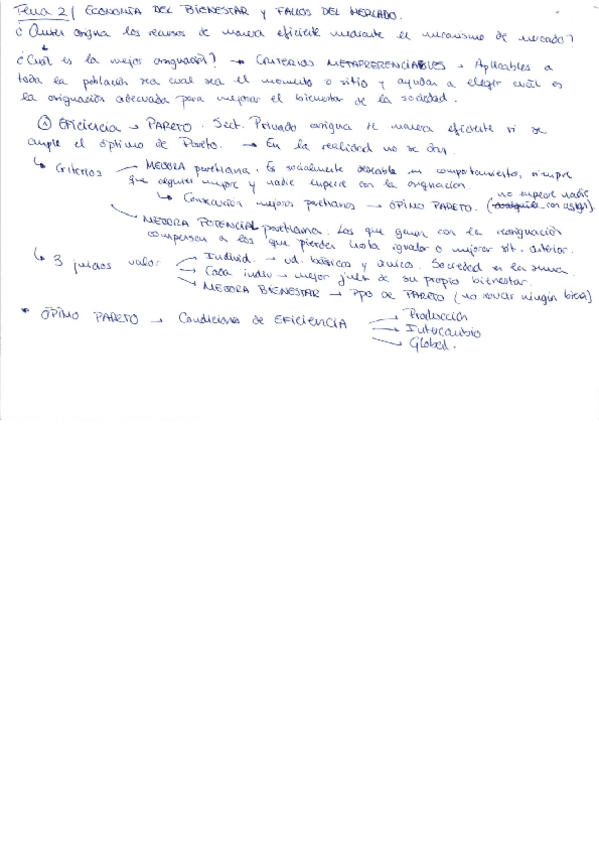 Tema 2 / ECONOMÍA DEL BIENESTAR Y FALLOS DEL MERCADO.
¿Quién asigna los recursos de manera eficiente mediante el mecanismo de mercado?
¿Cuál es la mejor asignación? → CRITERIOS METAPREFERENCIABLES → Aplicables a
toda la población sea cual sea el momento o sitio y ayudan a elegir cuál es
la asignación adecuada para mejorar el bienestar de la sociedad.
① EFICIENCIA → PARETO. Sect. Privado asigna de manera eficiente si se
cumple el óptimo de Pareto. → En la realidad no se dan.
↳ Criterios → MEJORA paretiana. Es socialmente deseable un comportamiento, siempre
que alguien mejore y nadie empeore con la asignación.
↳ Consecución mejoras paretianas → ÓPIMO PARETO. (no empeore nadie con asign).
→ MEJORA POTENCIAL paretiana. Los que ganan con la reasignación
compensan a los que pierden hasta igualar o mejorar sit. anterior.
↳ 3 juicios valor → Individ. → ud. básicos y únicos. Sociedad es la suma.
→ Cada indiv → mejor juez de su propio bienestar.
→ MEJORA BIENESTAR → Ppo de PARETO (no  ningún bien)
* ÓPIMO PARETO → Condiciones de EFICIENCIA → Producción
→ Intercambio
→ Global.